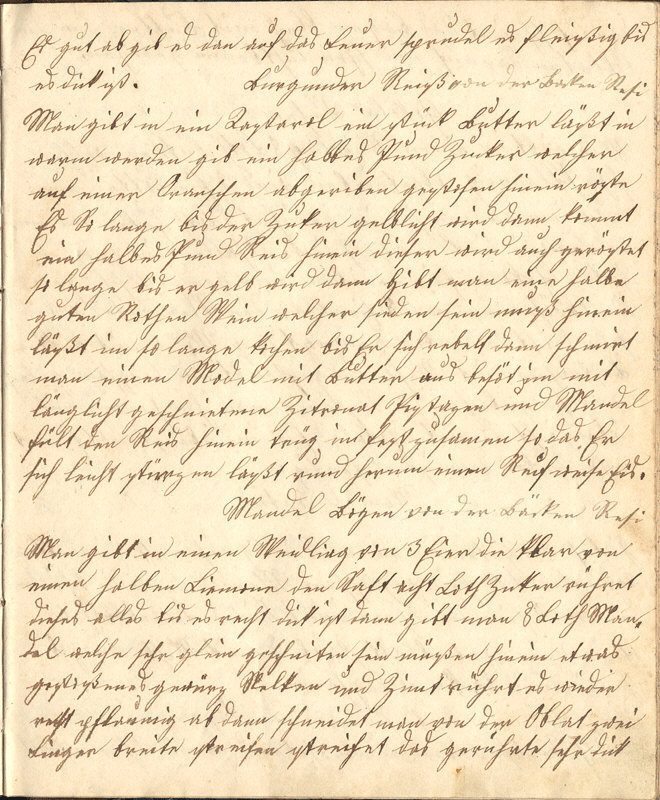 Er gut ab gib es dan auf das Feuer sprudel es fleißig bis
es dick ist. Burgunder Reiß von der Bäcken Resi
Man gibt in ein Kastarol ein stück Butter läßt in
warm werden gib ein halbes Pund Zucker welcher
auf einer Oranschen abgeriben gestosen hinein röste
Es So lange bis der Zuker gelblicht wird dann kommt
ein halbes Pund Reis hinein dieser wird auch geröstet
so lange bis er gelb wird dann Gibt man eine halbe
guten Rothen Wein welcher sieden sein muß hinein
läßt im so lange kochen bis Er sich rebelt dann schmirt
man einen Model mit Butter aus besät im mit
länglicht geschnietene Zitronat Pistazen und Mandel
fült den Reis hinein trüg im fest zusamen so das Er
sich leicht stürzen läßt rund herum einen Reif weise Eis.
Mandel Bögen von der Bäcken Resi
Man gibt in einen Weidling von 3 Eier die Klar von
einen halben Liemone den Saft acht Loth Zuker rühret
dieses alles bis es recht dick ist dann gibt man 8 Loth Man-
del welche sehr glein geschniten sein müßen hinein etwas
gestoßenes gewürz Nelken und Zimt rührt es wieder
recht pflaumig ab dann schneidet man von der Oblat zwei
Finger breite streifen streichet das gerührte sehr dick